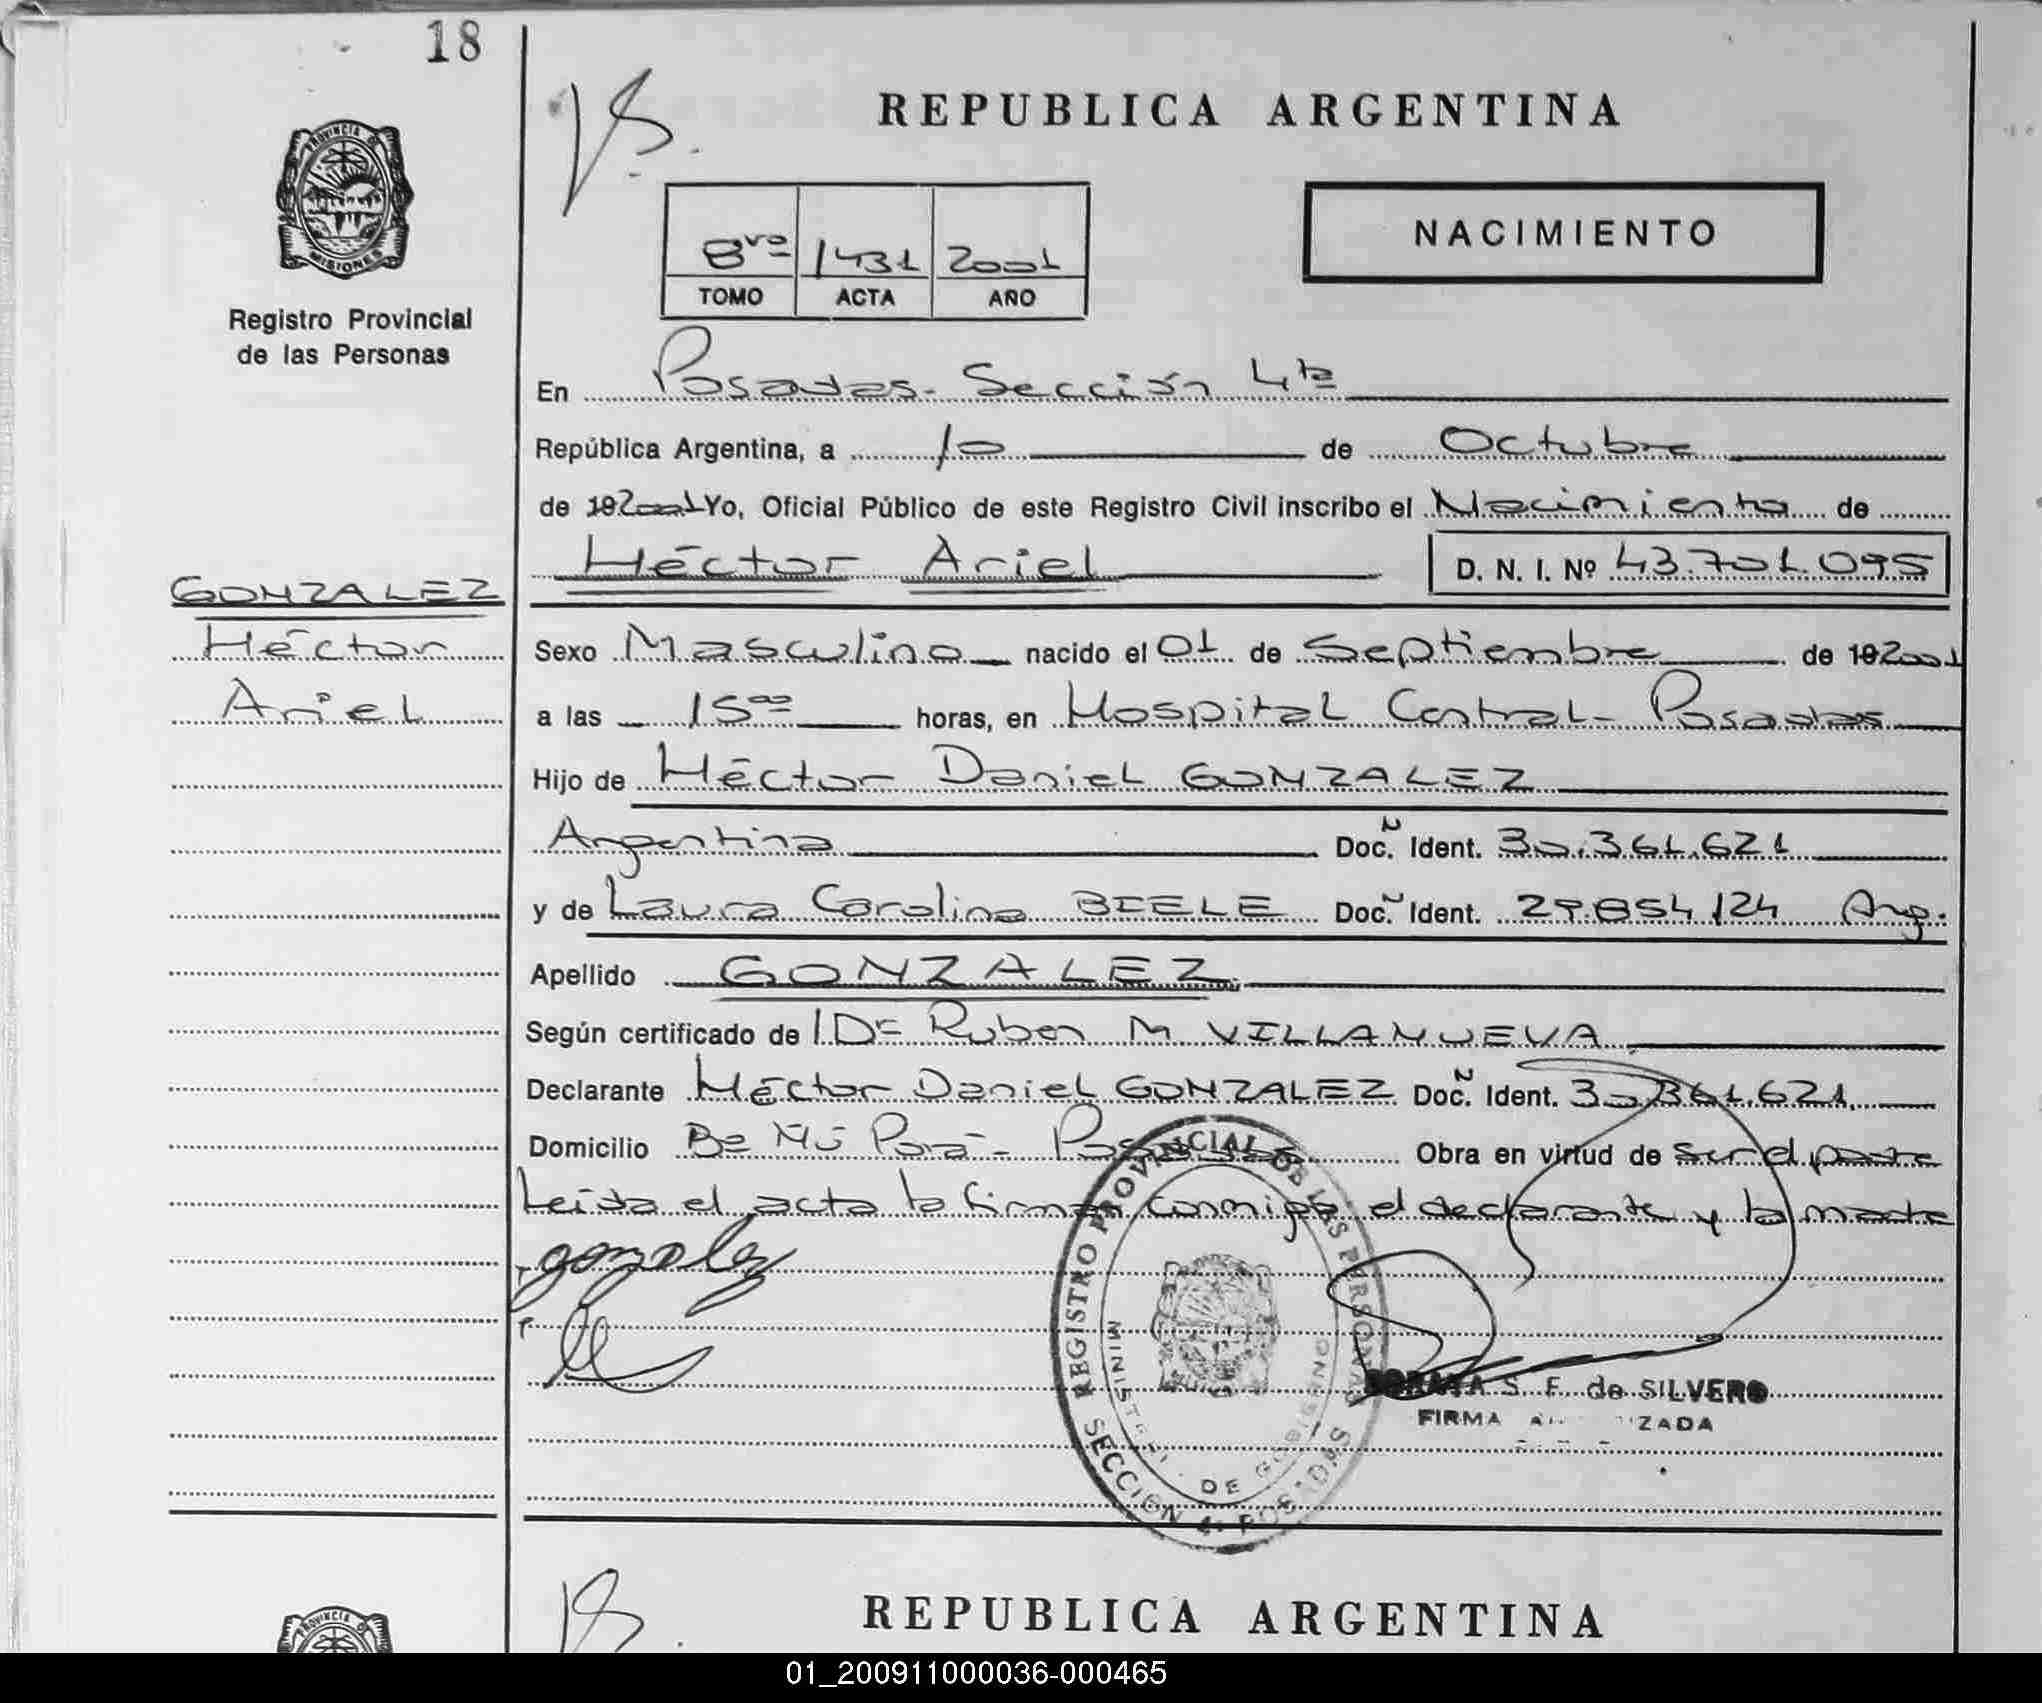 18
REPUBLICA ARGENTINA
PROVINCIA DE
MISIONES
Registro Provincial
de las Personas
8vo 1431 2001
TOMO ACTA AÑO
NACIMIENTO
En Posadas - Sección 4ta
República Argentina, a 10 de Octubre
de 192001 Yo, Oficial Público de este Registro Civil inscribo el Nacimiento de
Héctor Ariel D. N. I. Nº 43.701.095
GONZALEZ
Héctor
Ariel
Sexo Masculino nacido el 01 de Septiembre de 192001
a las 15 00 horas, en Hospital Central - Posadas
Hijo de Héctor Daniel GONZALEZ
Argentina Doc. N Ident. 30.361.621
y de Laura Carolina BIELE Doc. N Ident. 29.854.124 Arg.
Apellido GONZALEZ
Según certificado de Dr Ruben M VILLANUEVA
Declarante Héctor Daniel GONZALEZ Doc. N Ident. 30.361.621
Domicilio Bº Ñú Porá - Posadas Obra en virtud de ser el padre
Leida el acta la firman conmigo el declarante y la madre
gonzalez
REGISTRO PROVINCIAL DE LAS PERSONAS
MINISTERIO DE GOBIERNO
SECCION 4ª POSADAS
S. F. de SILVERO
FIRMA AUTORIZADA
REPUBLICA ARGENTINA
PROVINCIA
01_200911000036-000465